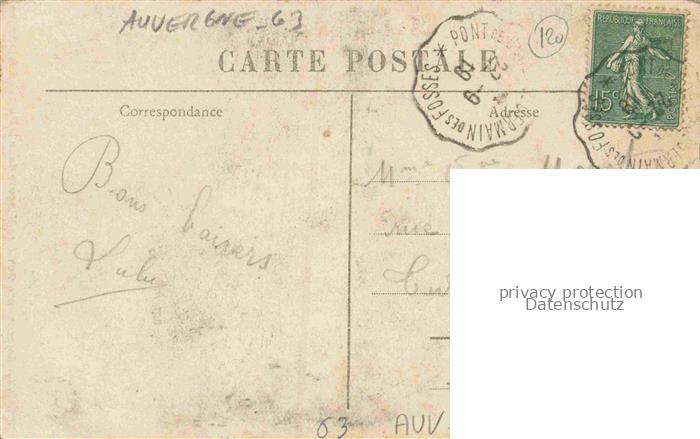 AUVERGNE - 63
120
CARTE POSTALE
REPUBLIQUE FRANÇAISE
15c
GERMAIN DES FOSSES * PONT DE
Correspondance
Adresse
Mme
rue
Bons baisers
Lulu
privacy protection
Datenschutz
63 AUV